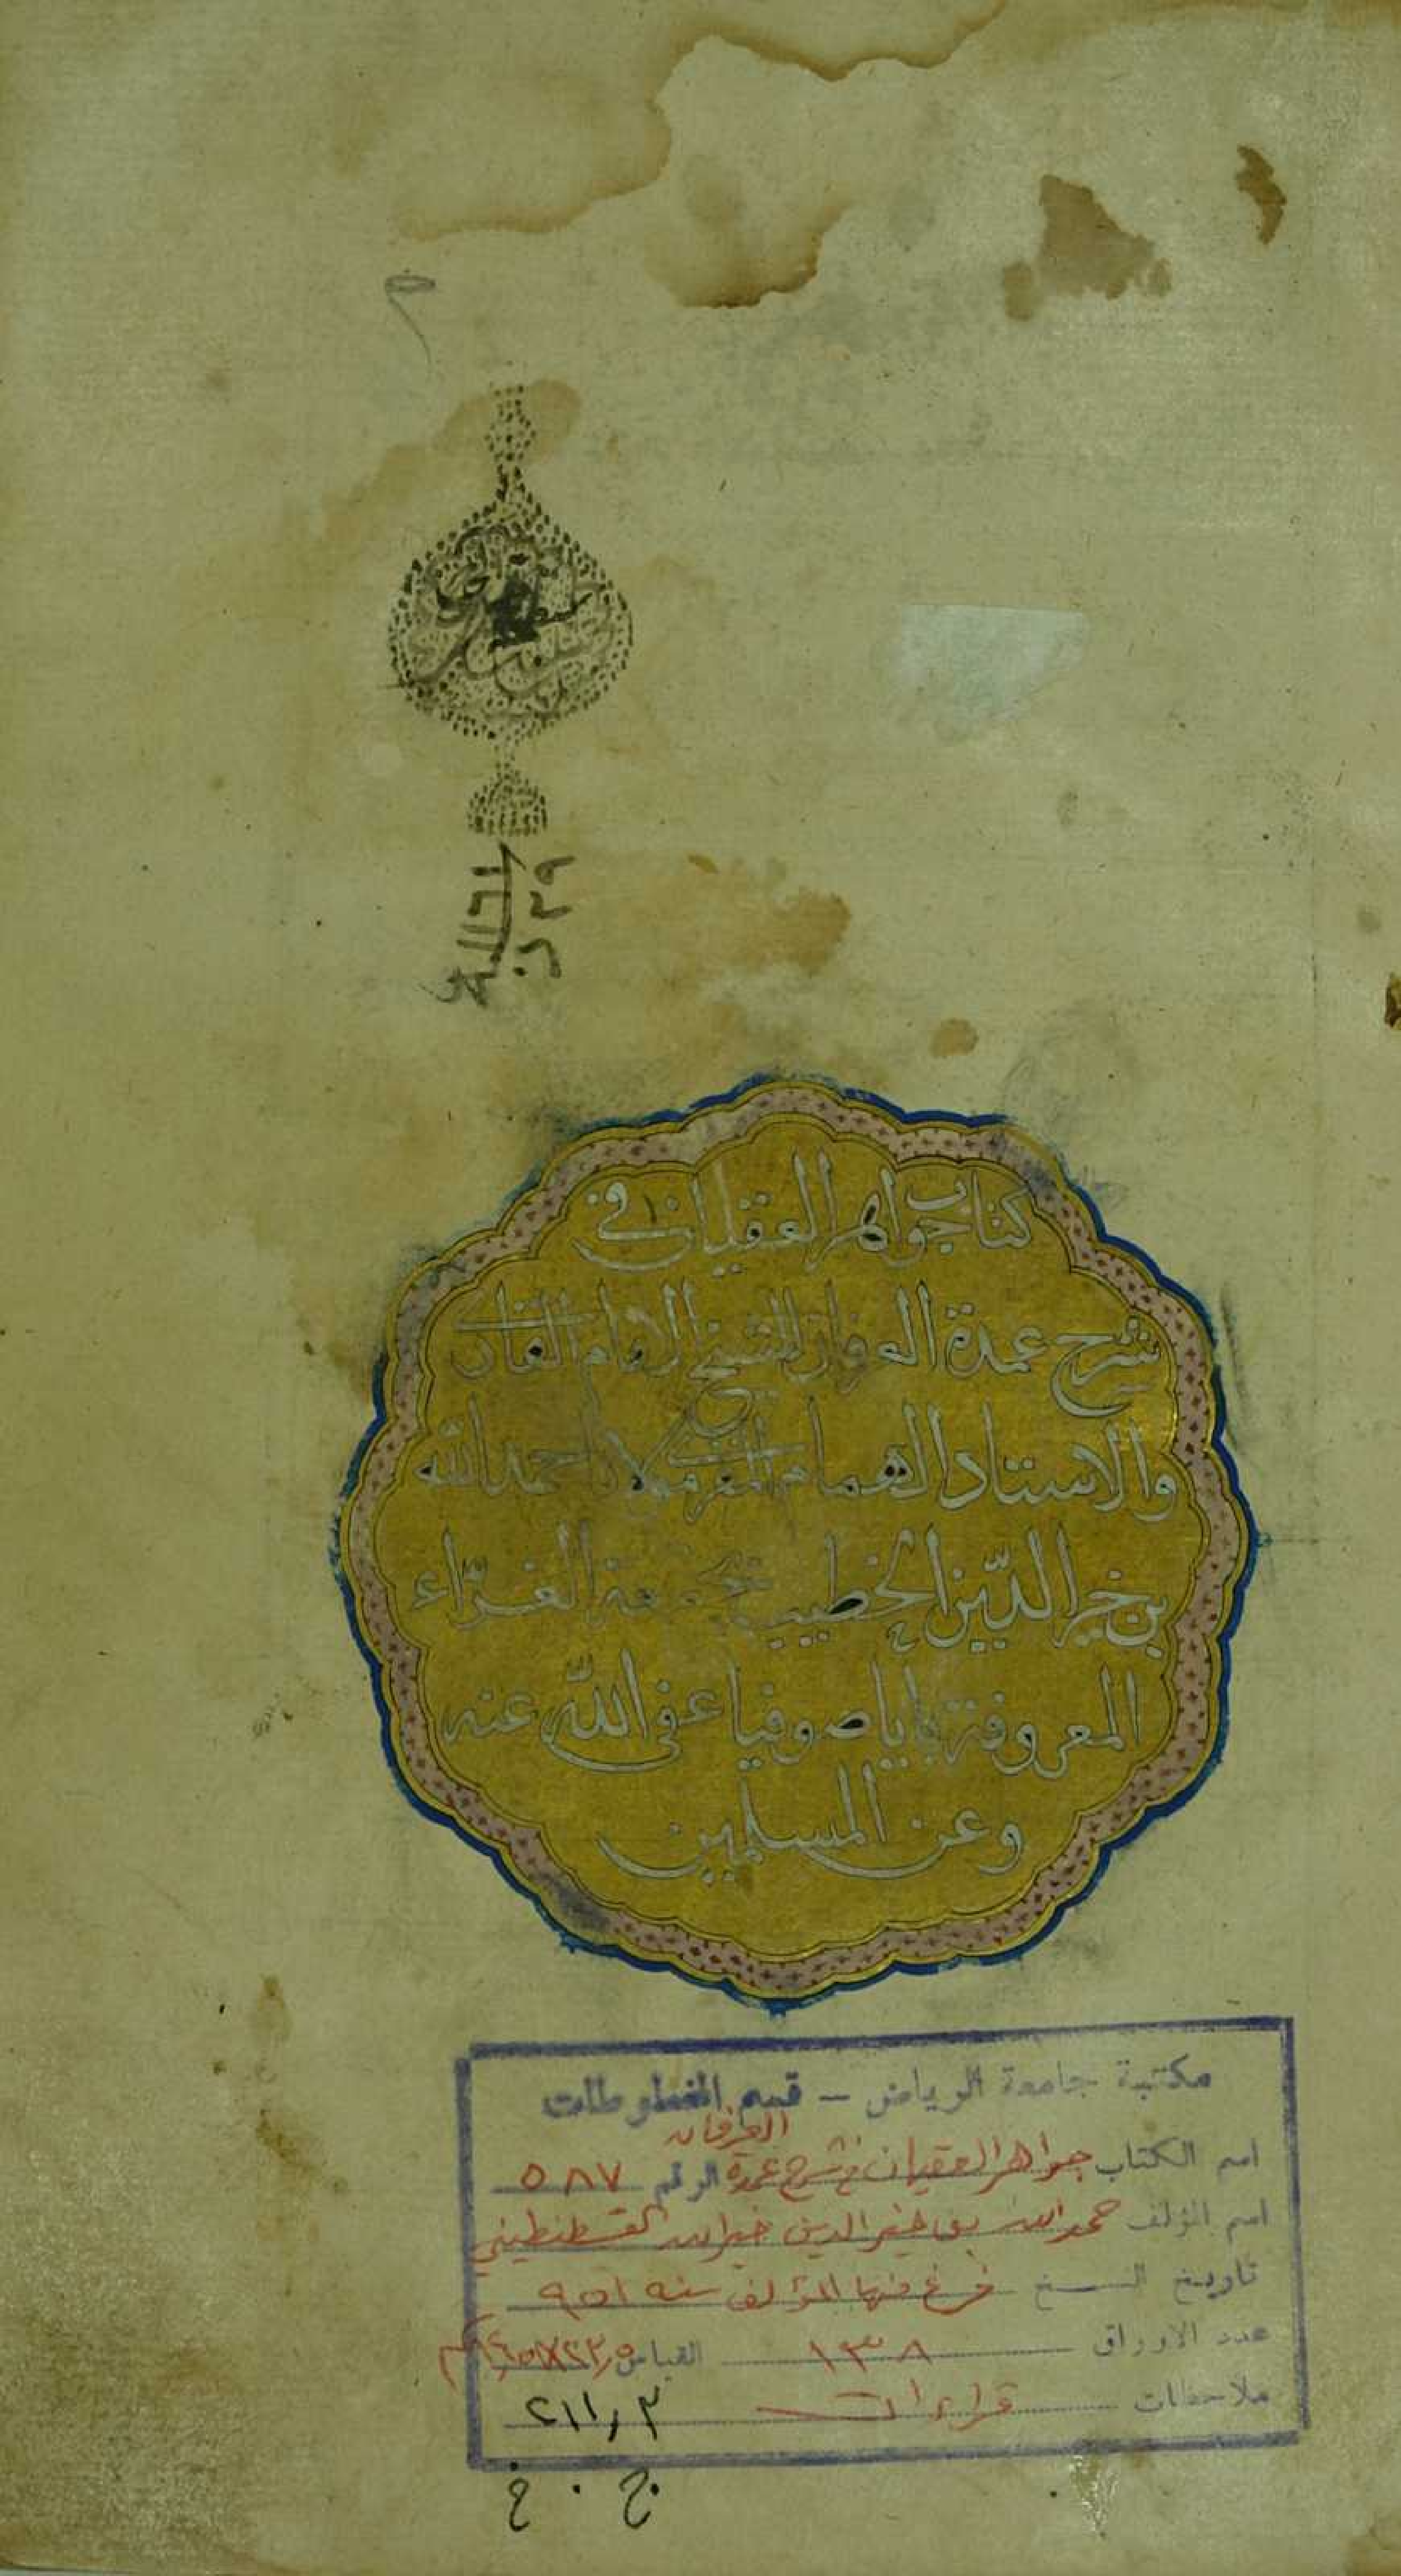 م
كتاب جواهر العقيان في
شرح عمدة العرفان للشيخ الامام القارى
والاستاد الهمام المقرى مولانا حمد الله
بن خير الدين الخطيب الغراء
المعروفة باياصوفيا عفى الله عنه
وعن المسلمين
مكتبة جامعة الرياض - قسم المخطوطات
العرفان
اسم الكتاب جواهر العقيان في شرح عمدة الرقم ٥٨٧
اسم المؤلف حمد الله بن خير الدين خير الله القسطنطيني
تاريخ النسخ فرغ منها المؤلف سنة ٩٥١
عدد الاوراق ١٣٨ القياس
ملاحظات قراءات ٢١١,٣
ج . خ